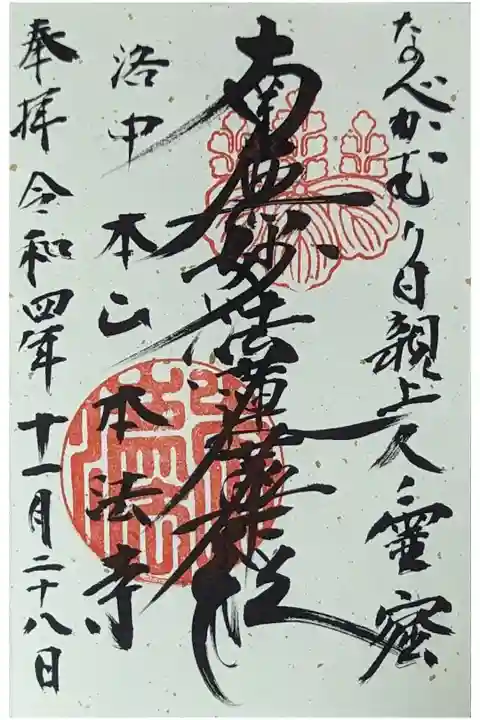 なべかむり日親上人霊窟
南無妙法蓮華経
洛中 本山 本法寺
奉拝 令和四年 十一月二十八日